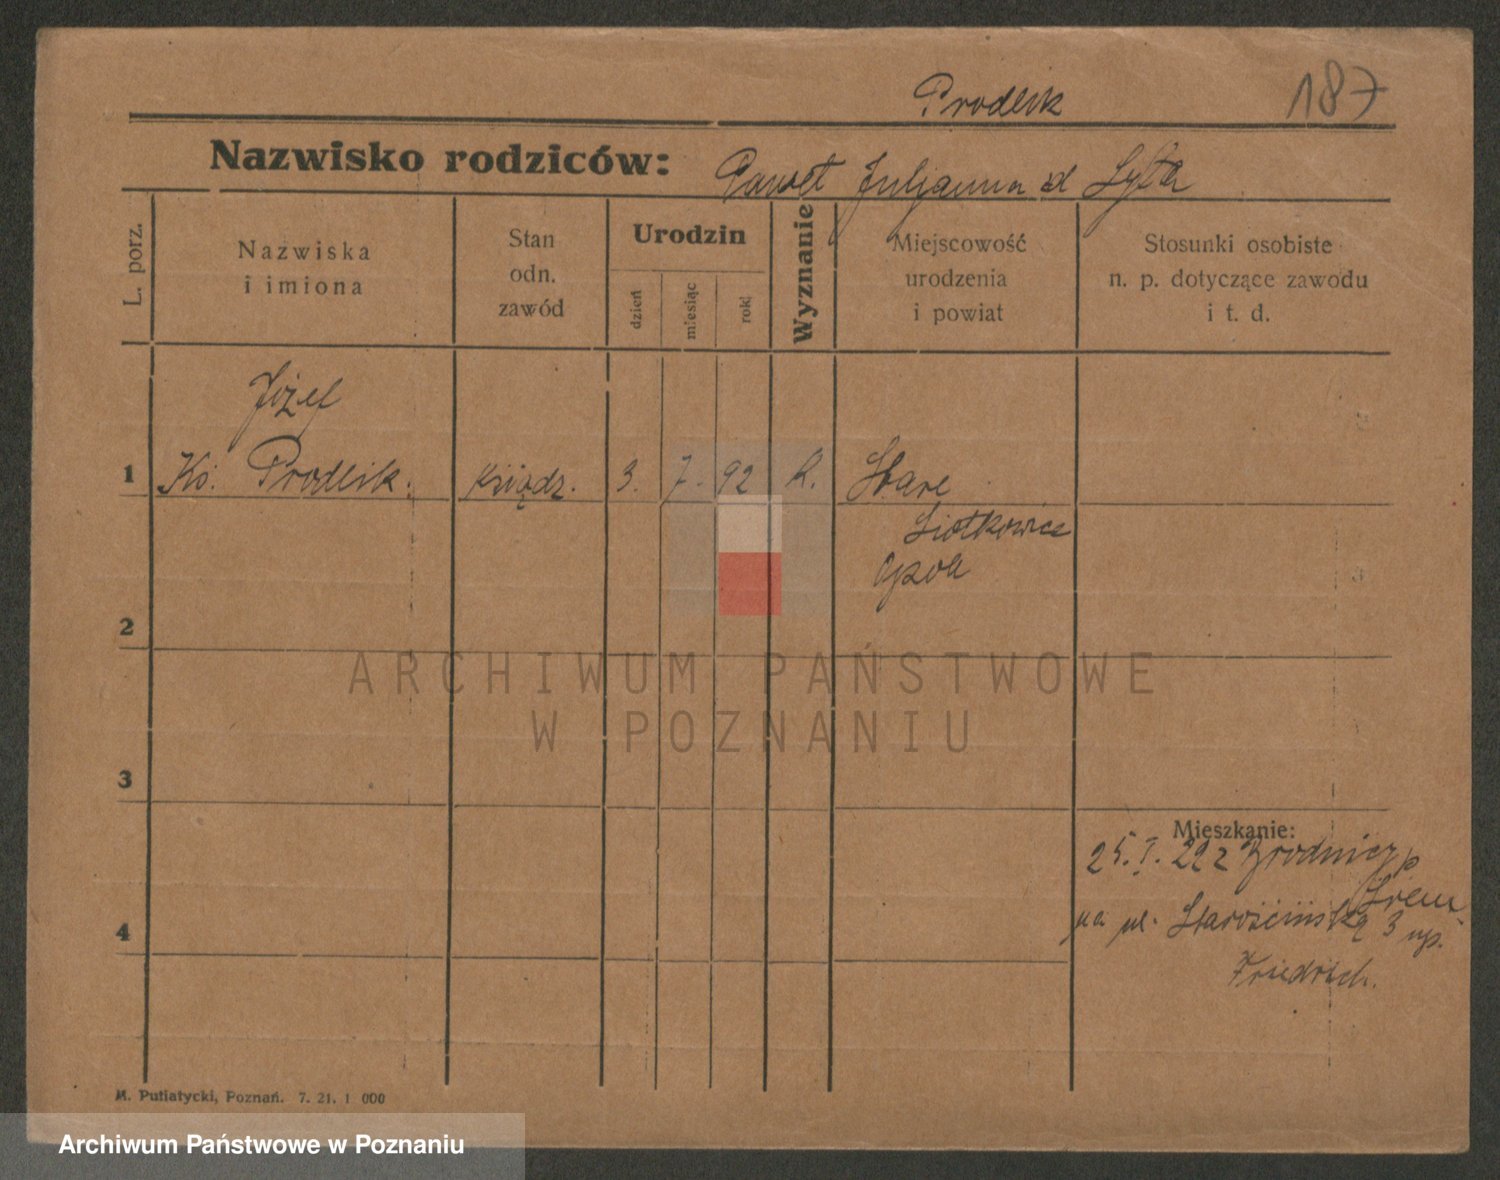 Prodlik 187
Nazwisko rodziców: Paweł Juljanna d Lytta
L. porz.
Nazwiska
i imiona
Stan
odn.
zawód
Urodzin
dzień
miesiąc
rok
Wyznanie
Miejscowość
urodzenia
i powiat
Stosunki osobiste
n. p. dotyczące zawodu
i t. d.
Józef
1 Ks. Prodlik. ksiądz. 3. 7. 92 R. Stare
Siołkowice
Opole
2
3
4
ARCHIWUM PAŃSTWOWE
W POZNANIU
Mieszkanie:
25. I. 22 z Brodnicy p
Śrem
na ul. Starościńska 3 up.
Friedrich.
M. Putiatycki, Poznań. 7. 21. 1 000
Archiwum Państwowe w Poznaniu